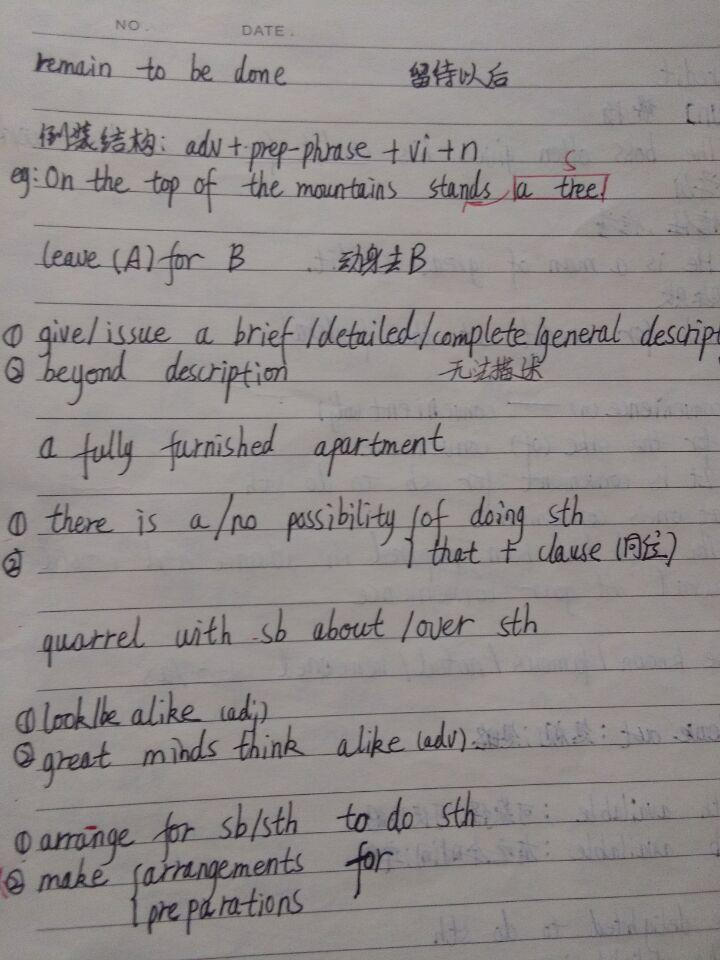 NO.  DATE.
remain to be done 留待以后
倒装结构: adv + prep-phrase + vi + n
S
eg: On the top of the mountains stands a tree
leave (A) for B 动身去B
① give/issue a brief/detailed/complete/general descript
② beyond description 无法描述
a fully furnished apartment
① there is a/no possibility { of doing sth
② { that + clause (同位)
quarrel with sb about/over sth
① look/be alike (adj)
② great minds think alike (adv).
① arrange for sb/sth to do sth
② make { arrangements for
{ preparations